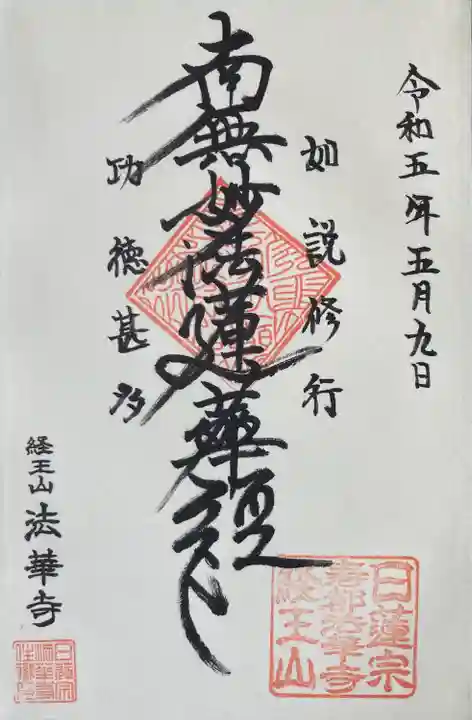 令和五年五月九日
如説修行
南無妙法蓮華経
功徳甚多
経王山 法華寺
日蓮宗
京都法華寺
経王山